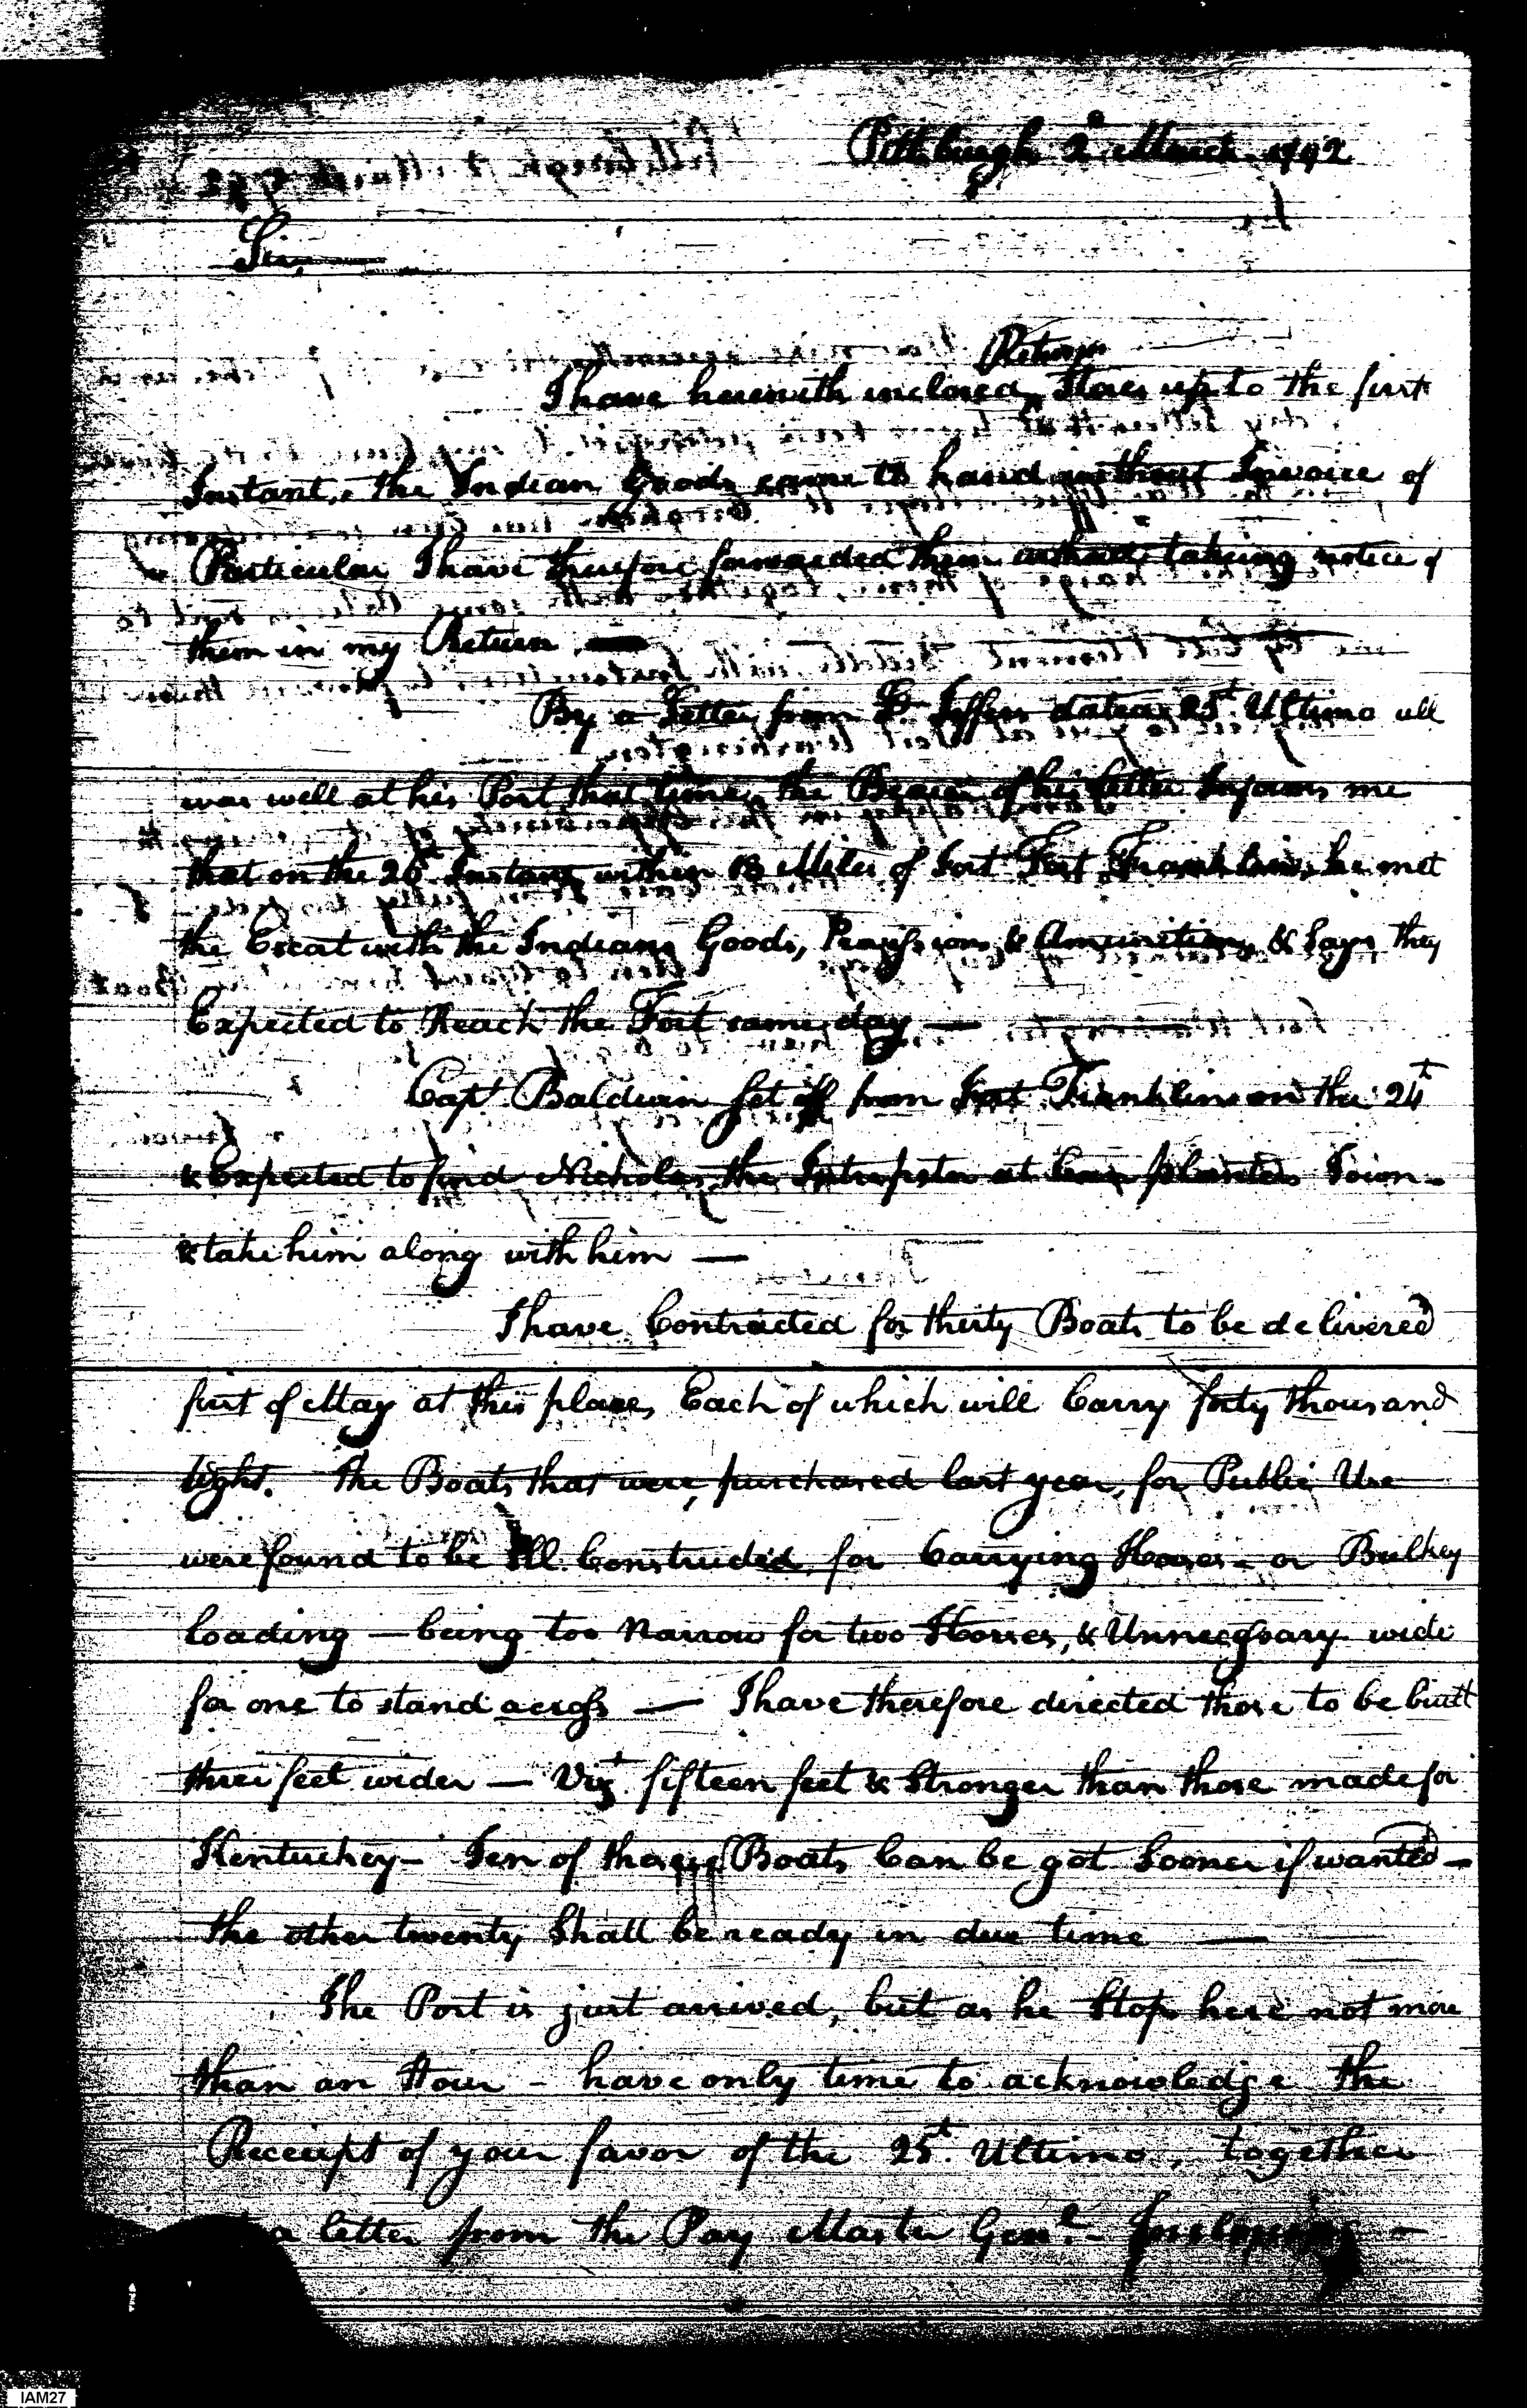 Pittsburgh 2d March 1792
Sir,
Return
I have herewith inclosed Stores up to the first
Instant, the Indian Goods came to hand without Invoice of
Particular I have therefore forwarded them without taking notice of
them in my Return
By a Letter from Lt. Jeffers dated 25t Ultimo all
was well at his Post that time, the Bearer of his letter Informs me
that on the 26t Instant, within 18 Miles of Fort Fort Franklin, he met
the Escat with the Indians Goods, Provissions & Amunition, & Says they
Expected to Reach the Fort same day —
Capt. Baldwin Set off from Fort Franklin on the 24th
& Expected to find Nicholas, the Intrepeter at Corn planters Town -
& take him along with him —
I have Contracted for thirty Boats to be delivered
first of May at this place, Each of which will Carry forty thousand
wight. The Boats that were purchased last year, for Public Use
were found to be Ill Constructed, for Carrying Horses - or Bulkey
loading — being too Narrow for two Horses, & Unnecessary wide
for one to stand across — I have therefore directed those to be built
three feet wider — Vizt. fifteen feet & Stronger than those made for
Kentuckey - Ten of those Boats Can be got Sooner if wanted -
the other twenty Shall be ready in due time —
The Post is just arrived, but as he Stops here not more
than an Hour - have only time to acknowledge the
Receipt of your favor of the 25t. Ultimo, together
a letter from the Pay Master Genl. Inclosing -
IAM27